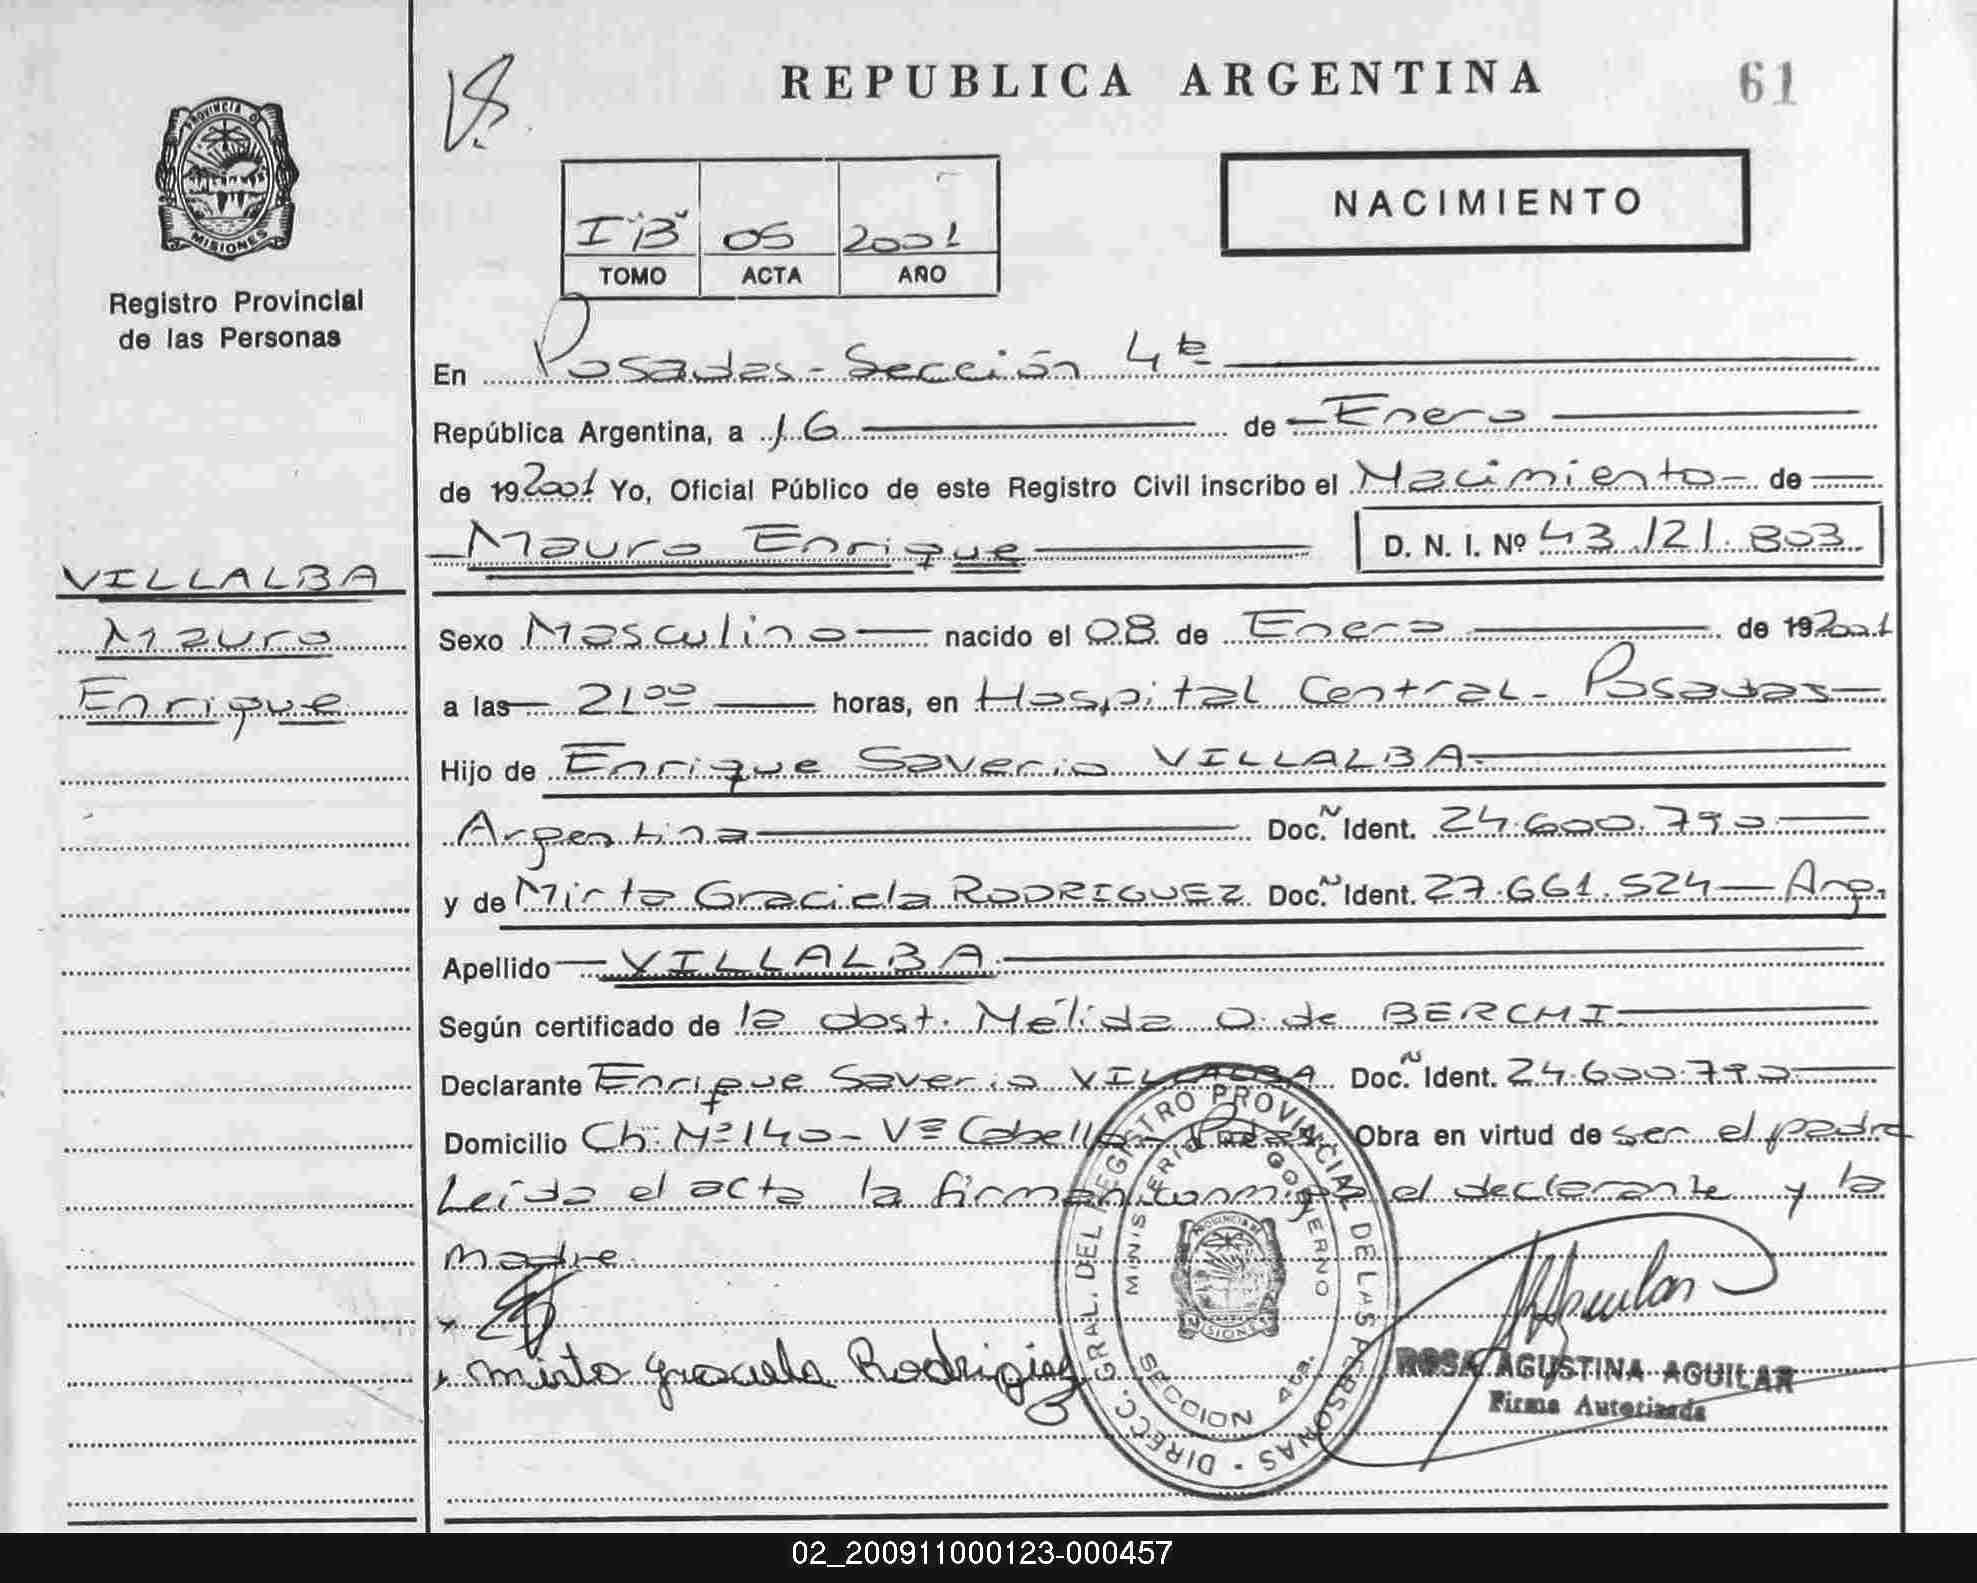 REPUBLICA ARGENTINA
61
PROVINCIA D
MISIONES
Registro Provincial
de las Personas
I "B" 05 2001
TOMO ACTA AÑO
NACIMIENTO
En Posadas - Sección 4ta
República Argentina, a 16 de Enero
de 192001 Yo, Oficial Público de este Registro Civil inscribo el Nacimiento de
Mauro Enrique D. N. I. Nº 43.121.803
VILLALBA
Mauro
Enrique
Sexo Masculino nacido el 08 de Enero de 192001
a las 21 00 horas, en Hospital Central - Posadas
Hijo de Enrique Saverio VILLALBA
Argentina Doc. Ñ Ident. 24.600.790
y de Mirta Graciela RODRIGUEZ Doc. Ñ Ident. 27.661.524 - Arg.
Apellido VILLALBA
Según certificado de la obst. Nélida O. de BERCHI
Declarante Enrique Saverio VILLALBA Doc. Ñ Ident. 24.600.790
Domicilio Ch. Nº 140 - Vº Cabello - Pdas. Obra en virtud de ser el padre
Leída el acta la firman conmigo el declarante y la
madre.
Mirta Graciela Rodriguez
DIRECC. GRAL. DEL REGISTRO PROVINCIAL DE LAS PERSONAS
MINISTERIO GOBIERNO
PROVINCIA
MISIONES
SECCION 4ta.
ROSA AGUSTINA AGUILAR
Firma Autorizada
02_200911000123-000457